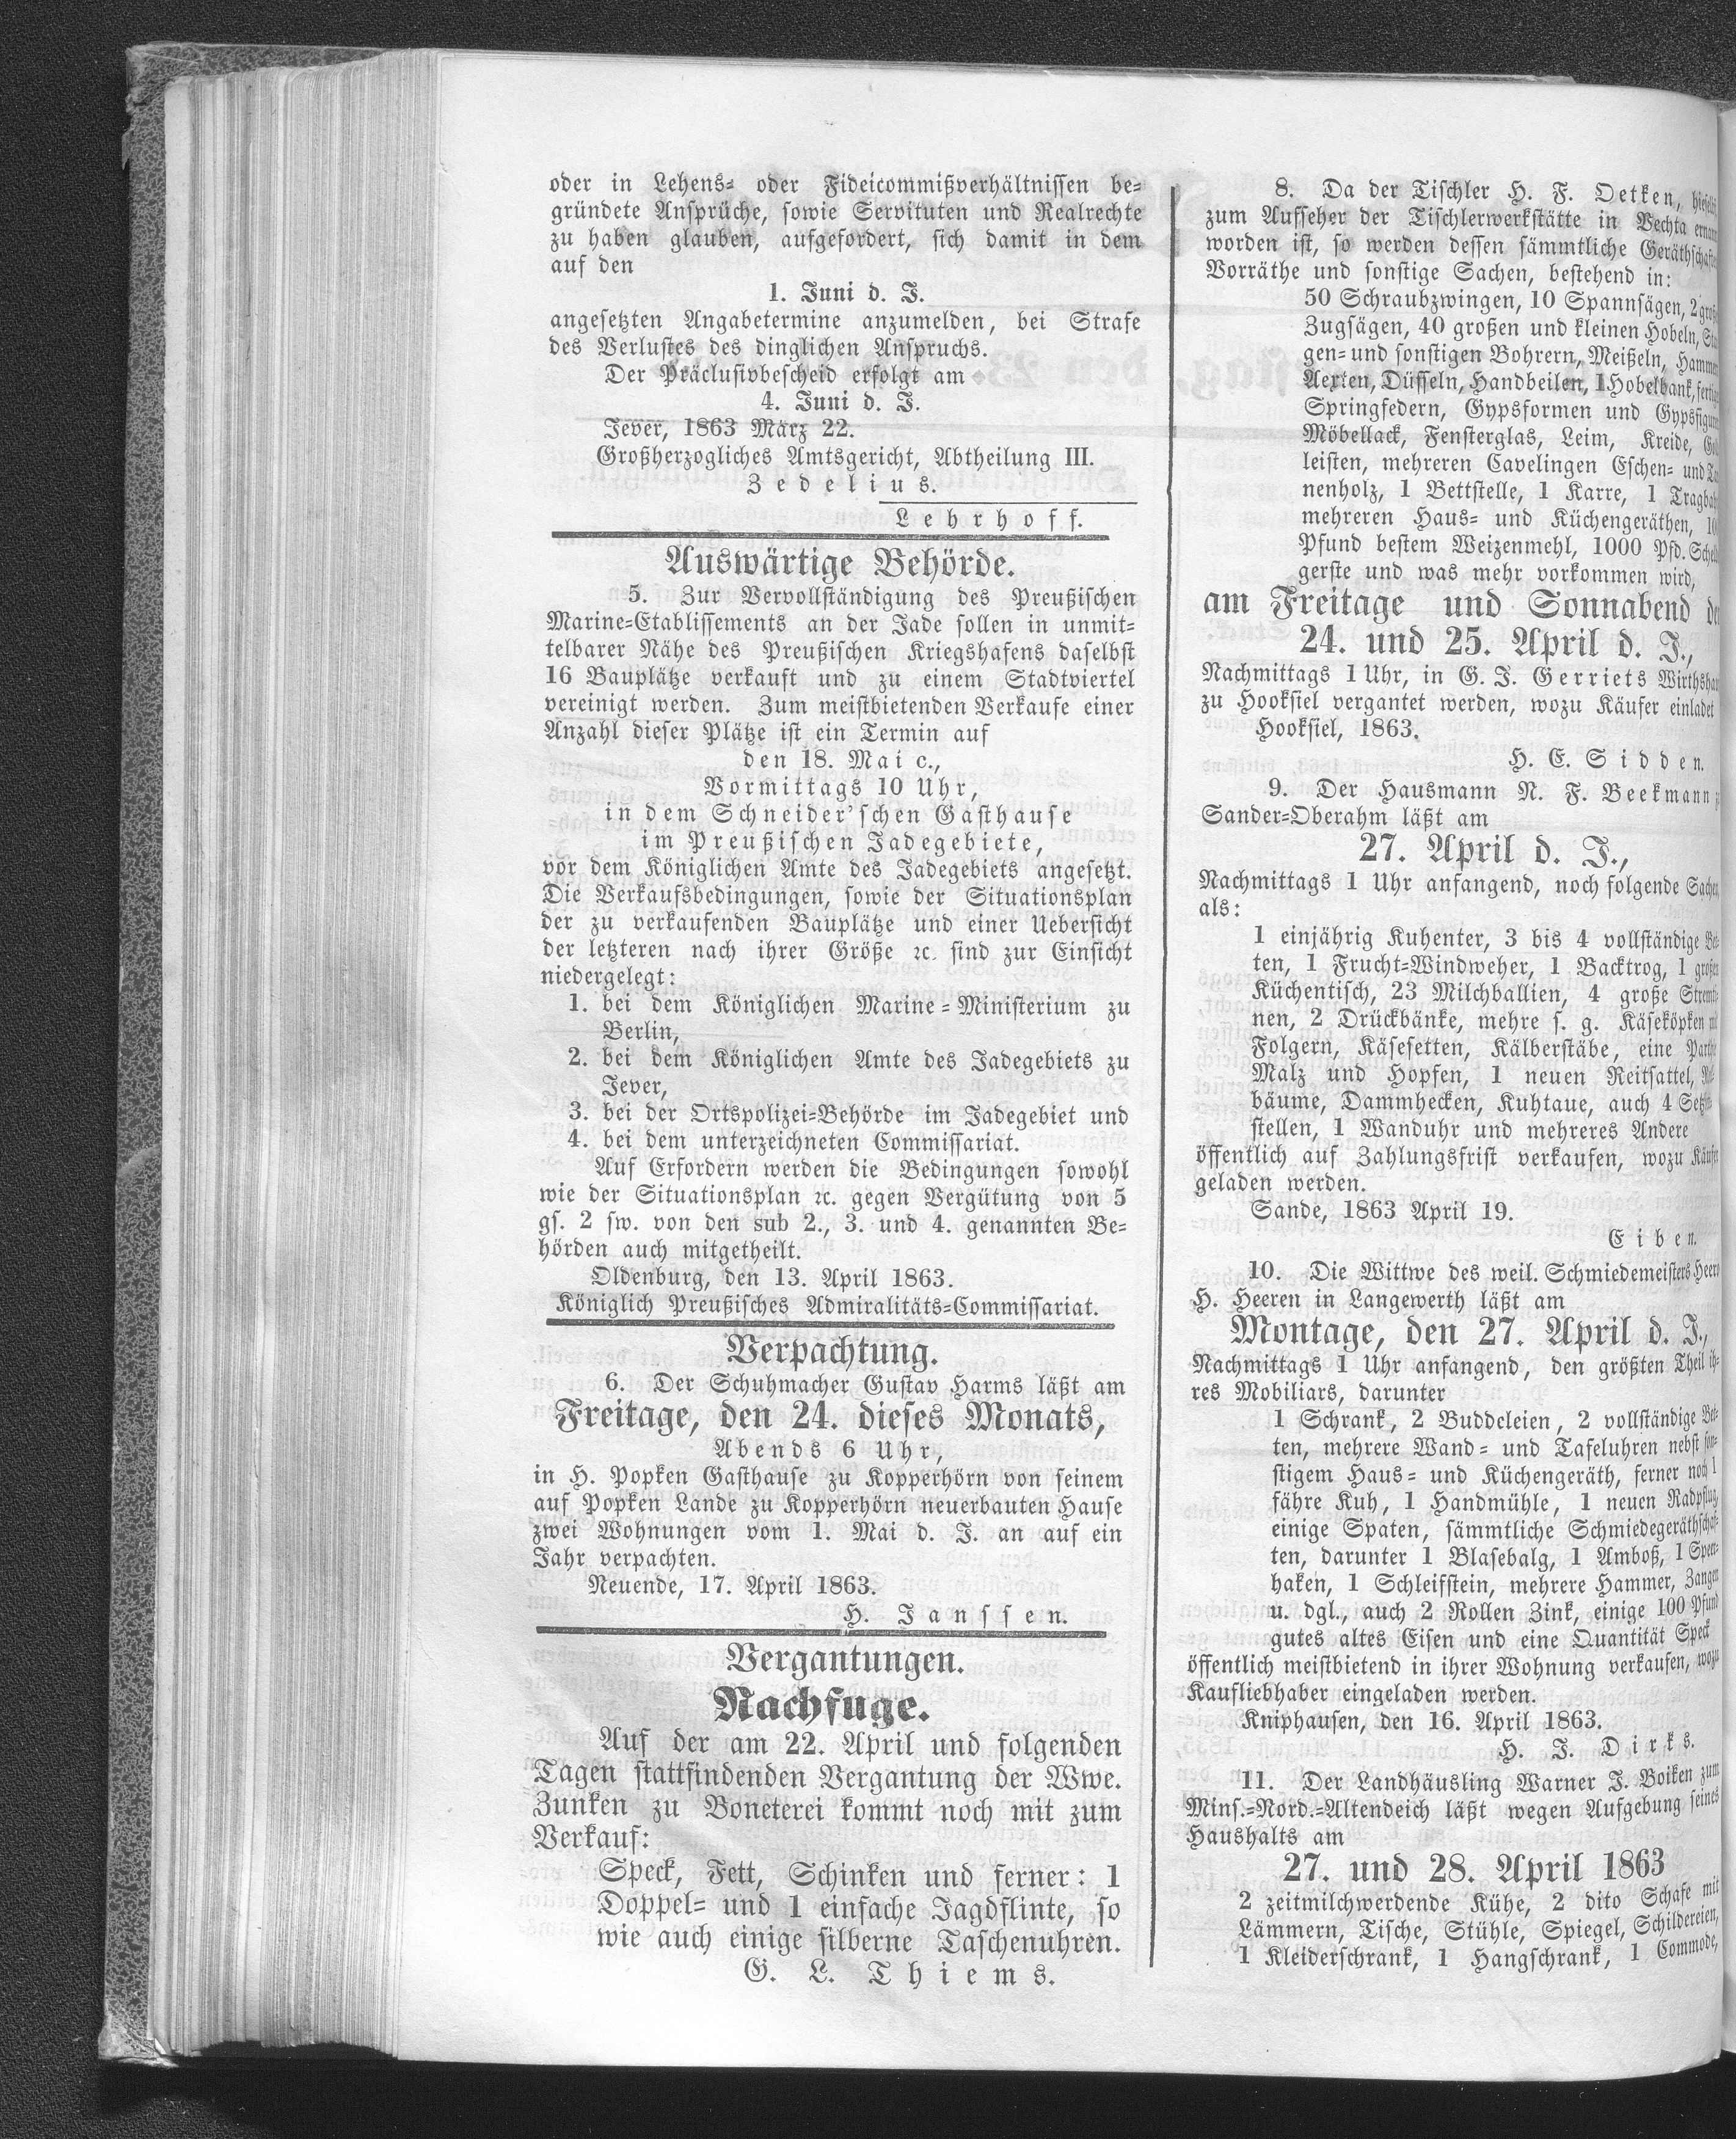 oder in Lehens- oder Fideicommißverhältnissen be-
gründete Ansprüche, sowie Servituten und Realrechte
zu haben glauben, aufgefordert, sich damit in dem
auf den
1. Juni d. J.
angesetzten Angabetermine anzumelden, bei Strafe
des Verlustes des dinglichen Anspruchs.
Der Präclusivbescheid erfolgt am
4. Juni d. J.
Jever, 1863 März 22.
Großherzogliches Amtsgericht, Abtheilung III.
Zedelius.
Lehrhoff.
Auswärtige Behörde.
5. Zur Vervollständigung des Preußischen
Marine-Etablissements an der Jade sollen in unmit-
telbarer Nähe des Preußischen Kriegshafens daselbst
16 Bauplätze verkauft und zu einem Stadtviertel
vereinigt werden. Zum meistbietenden Verkaufe einer
Anzahl dieser Plätze ist ein Termin auf
den 18. Mai c.,
Vormittags 10 Uhr,
in dem Schneider'schen Gasthause
im Preußischen Jadegebiete,
vor dem Königlichen Amte des Jadegebiets angesetzt.
Die Verkaufsbedingungen, sowie der Situationsplan
der zu verkaufenden Bauplätze und einer Uebersicht
der letzteren nach ihrer Größe ꝛc. sind zur Einsicht
niedergelegt:
1. bei dem Königlichen Marine-Ministerium zu
Berlin,
2. bei dem Königlichen Amte des Jadegebiets zu
Jever,
3. bei der Ortspolizei-Behörde im Jadegebiet und
4. bei dem unterzeichneten Commissariat.
Auf Erfordern werden die Bedingungen sowohl
wie der Situationsplan ꝛc. gegen Vergütung von 5
gs. 2 sw. von den sub 2., 3. und 4. genannten Be-
hörden auch mitgetheilt.
Oldenburg, den 13. April 1863.
Königlich Preußisches Admiralitäts-Commissariat.
Verpachtung.
6. Der Schuhmacher Gustav Harms läßt am
Freitage, den 24. dieses Monats,
Abends 6 Uhr,
in H. Popken Gasthause zu Kopperhörn von seinem
auf Popken Lande zu Kopperhörn neuerbauten Hause
zwei Wohnungen vom 1. Mai d. J. an auf ein
Jahr verpachten.
Neuende, 17. April 1863.
H. Janssen.
Vergantungen.
Nachfuge.
Auf der am 22. April und folgenden
Tagen stattfindenden Vergantung der Wwe.
Zunken zu Boneterei kommt noch mit zum
Verkauf:
Speck, Fett, Schinken und ferner: 1
Doppel- und 1 einfache Jagdflinte, so
wie auch einige silberne Taschenuhren.
G. L. Thiems.
8. Da der Tischler H. F. Oetken,
zum Aufseher der Tischlerwerkstätte in Vechta
worden ist, so werden dessen sämmtliche
Vorräthe und sonstige Sachen, bestehend in:
50 Schraubzwingen, 10 Spannsägen, 2
Zugsägen, 40 großen und kleinen Hobeln,
gen- und sonstigen Bohrern, Meißeln,
Aexten, Düsseln, Handbeilen, 1 Hobelbank,
Springfedern, Gypsformen und
Möbellack, Fensterglas, Leim, Kreide,
leisten, mehreren Cavelingen Eschen- und
nenholz, 1 Bettstelle, 1 Karre, 1
mehreren Haus- und Küchengeräthen,
Pfund bestem Weizenmehl, 1000 Pfd.
gerste und was mehr vorkommen wird,
am Freitage und Sonnabend
24. und 25. April d. J.,
Nachmittags 1 Uhr, in G. J. Gerriets
zu Hooksiel vergantet werden, wozu Käufer einladet
Hooksiel, 1863.
H. E. Sidden.
9. Der Hausmann N. F. Beekmann
Sander-Oberahm läßt am
27. April d. J.,
Nachmittags 1 Uhr anfangend, noch folgende
als:
1 einjährig Kuhenter, 3 bis 4 vollständige Bet-
ten, 1 Frucht-Windweher, 1 Backtrog, 1 großen
Küchentisch, 23 Milchballien, 4 große
nen, 2 Drückbänke, mehre s. g. Käseköpken
Folgern, Käsesetten, Kälberstäbe, eine
Malz und Hopfen, 1 neuen Reitsattel,
bäume, Dammhecken, Kuhtaue, auch 4
stellen, 1 Wanduhr und mehreres Andere
öffentlich auf Zahlungsfrist verkaufen, wozu Käufer
geladen werden.
Sande, 1863 April 19.
Eiben.
10. Die Wittwe des weil. Schmiedemeisters
H. Heeren in Langewerth läßt am
Montage, den 27. April d. J.,
Nachmittags 1 Uhr anfangend, den größten Theil ih-
res Mobiliars, darunter
1 Schrank, 2 Buddeleien, 2 vollständige Bet-
ten, mehrere Wand- und Tafeluhren nebst son-
stigem Haus- und Küchengeräth, ferner noch 1
fähre Kuh, 1 Handmühle, 1 neuen Radpflug,
einige Spaten, sämmtliche Schmiedegeräthschaf-
ten, darunter 1 Blasebalg, 1 Amboß, 1
haken, 1 Schleifstein, mehrere Hammer, Zangen
u. dgl., auch 2 Rollen Zink, einige 100 Pfund
gutes altes Eisen und eine Quantität Speck
öffentlich meistbietend in ihrer Wohnung verkaufen, wozu
Kaufliebhaber eingeladen werden.
Kniphausen, den 16. April 1863.
H. J. Dirks.
11. Der Landhäusling Warner J. Boiken zum
Mins.-Nord.-Altendeich läßt wegen Aufgebung seines
Haushalts am
27. und 28. April 1863
2 zeitmilchwerdende Kühe, 2 dito Schafe mit
Lämmern, Tische, Stühle, Spiegel, Schildereien,
1 Kleiderschrank, 1 Hangschrank, 1 Commode,